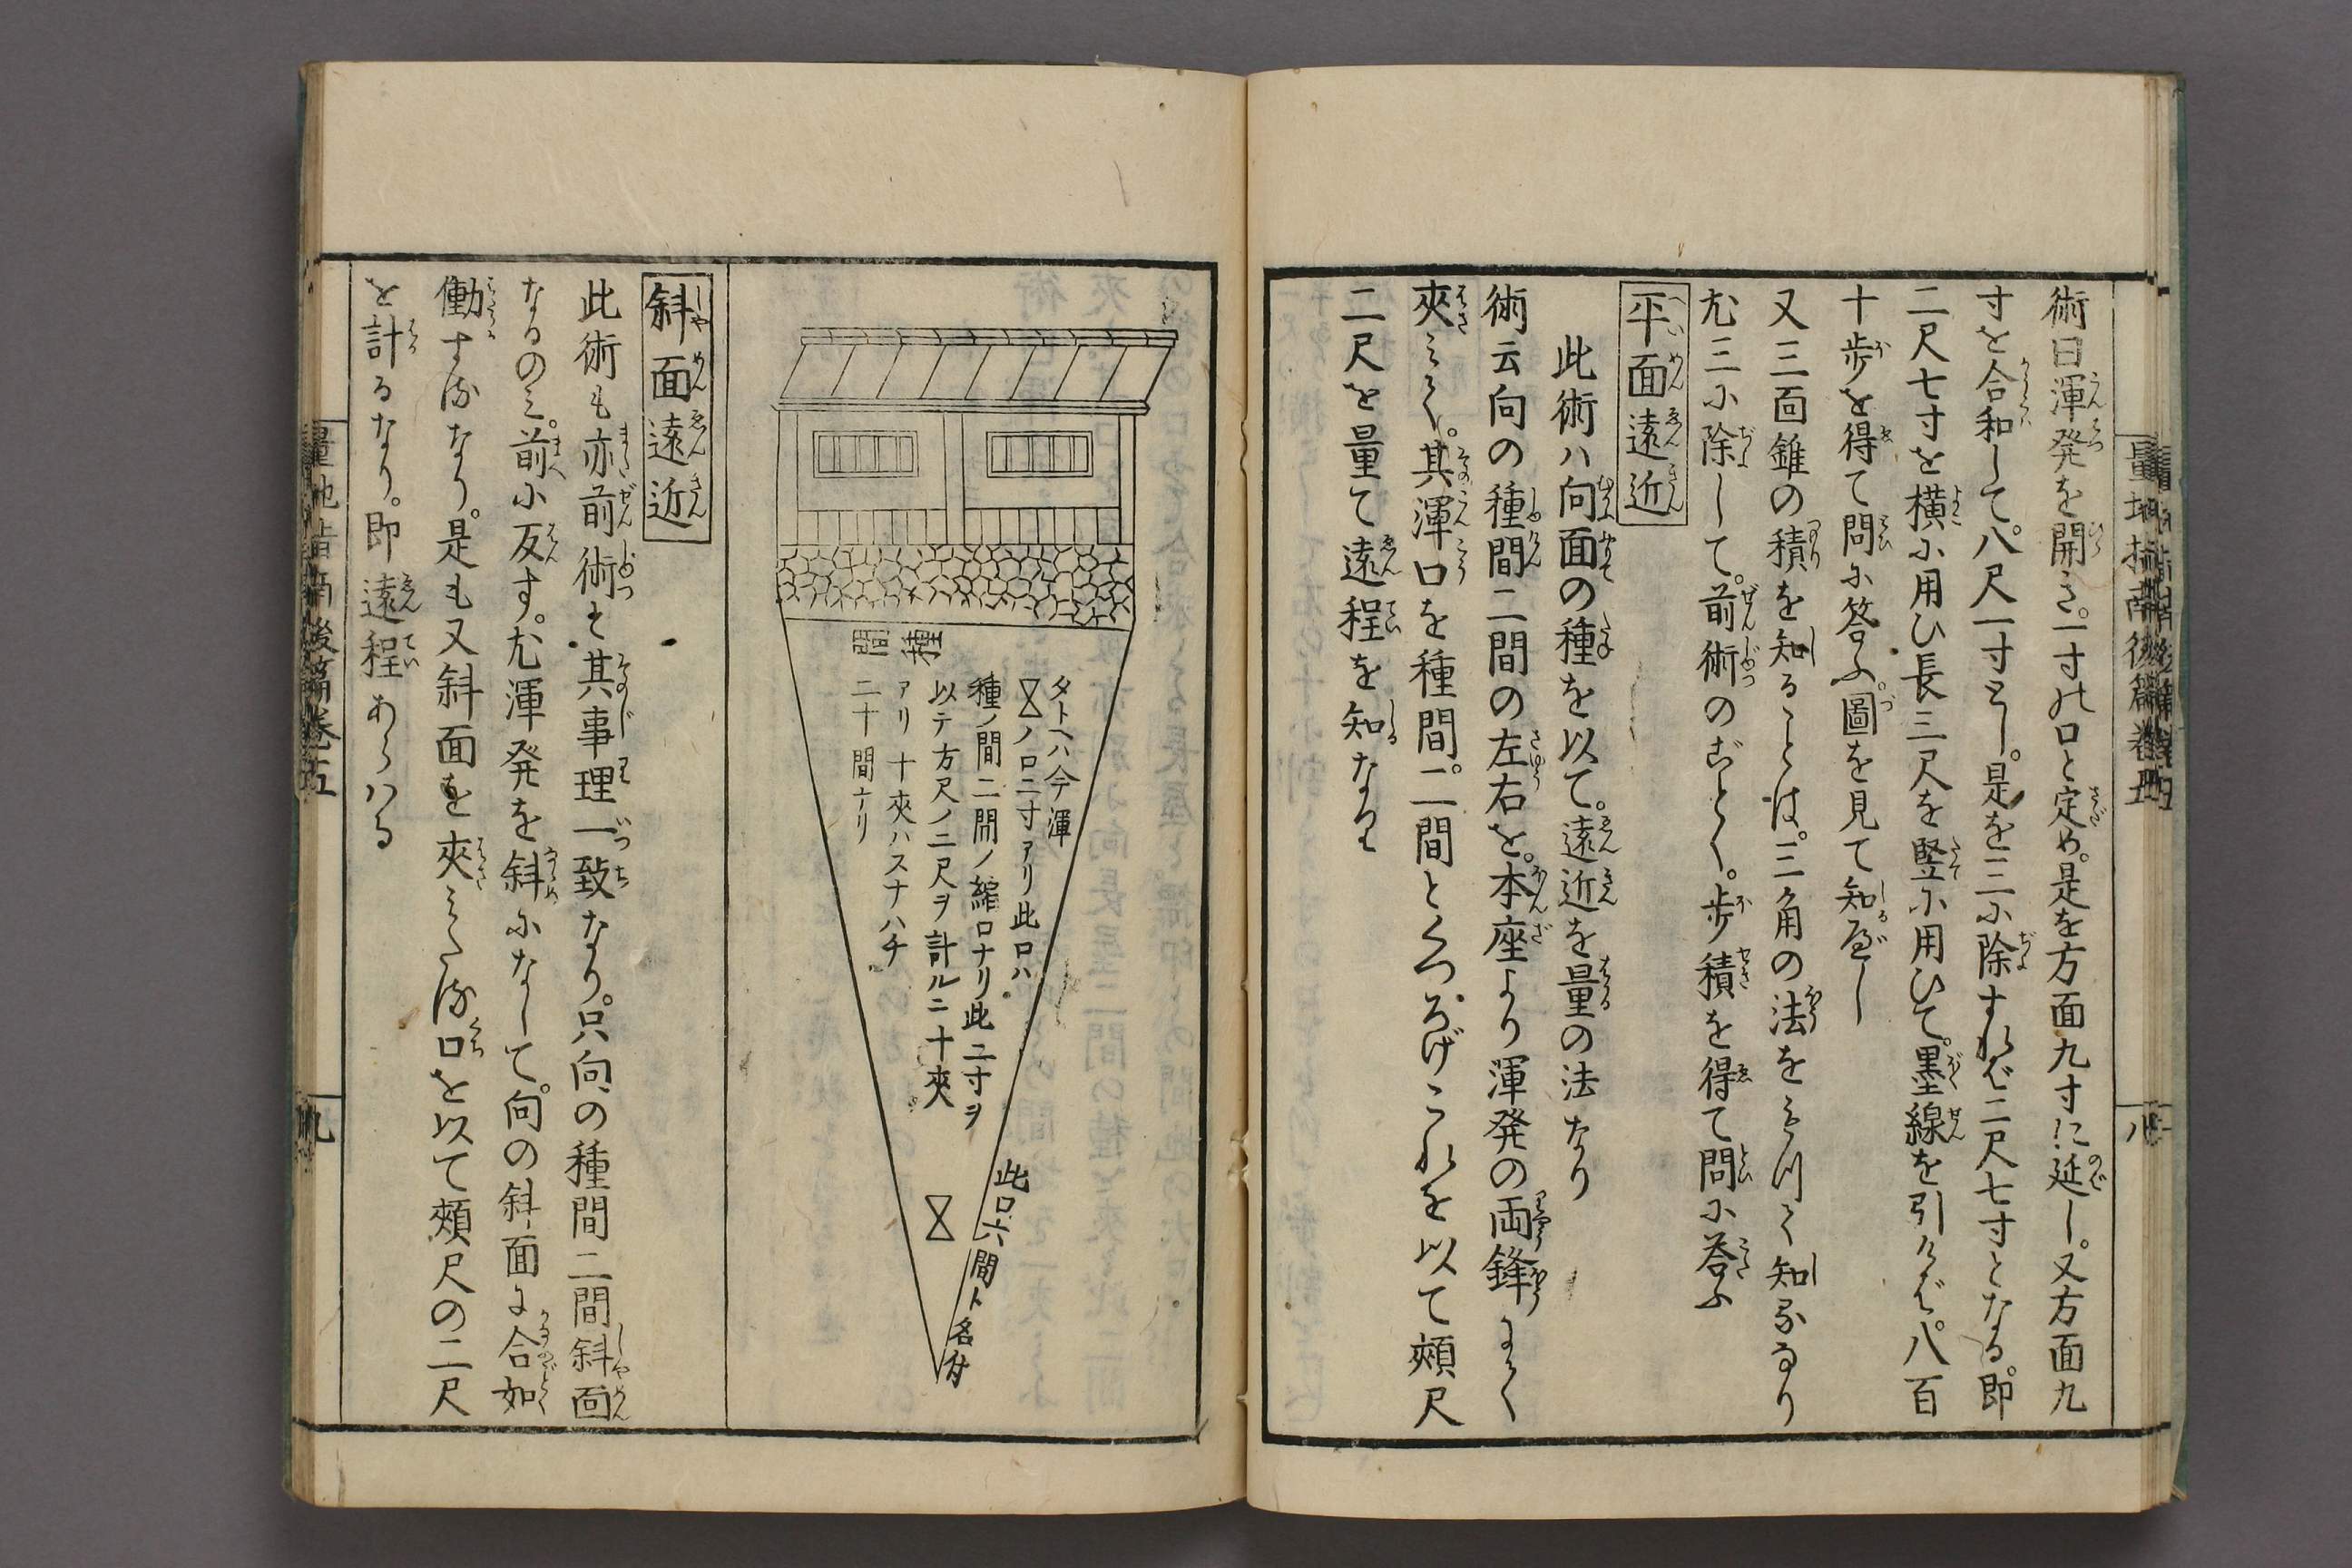 術曰渾発を開き。一寸の口と定め。是を方面九寸に延し。又方面九
寸を合和して。八尺一寸とし。是を三に除すれば二尺七寸となる。即
二尺七寸を横に用ひ長三尺を竪に用ひて。墨線を引ケば。八百
十歩を得て問に答ふ。圖を見て知べし
又三面錐の積を知ることは。三角の法をみつて知るなり
尤三に除して。前術のごとく。歩積を得て問に答ふ
平面遠近
此術ハ向面の種を以て。遠近を量の法なり
術云向の種間二間の左右を。本座より渾発の両鋒にて
夾ミて。其渾口を種間。二間とくつろげこれを以て頬尺
二尺を量て遠程を知なり
量地指南後篇巻五
八
種間
タトヘハ今渾
ノ口二寸アリ此口ハ
種ノ間二間ノ縮口ナリ此二寸ヲ
以テ方尺ノ二尺ヲ計ルニ十夾
アリ十夾ハスナハチ
二十間ナリ
此口六間ト名付
斜面遠近
此術も亦前術と其事理一致なり。只向の種間二間斜面
なるのミ。前に反す。尤渾発を斜になして。向の斜面に合如
働するなり。是も又斜面を夾ミたる口を以て頬尺の二尺
を計るなり。即遠程あらハる
量地指南後篇巻五
九